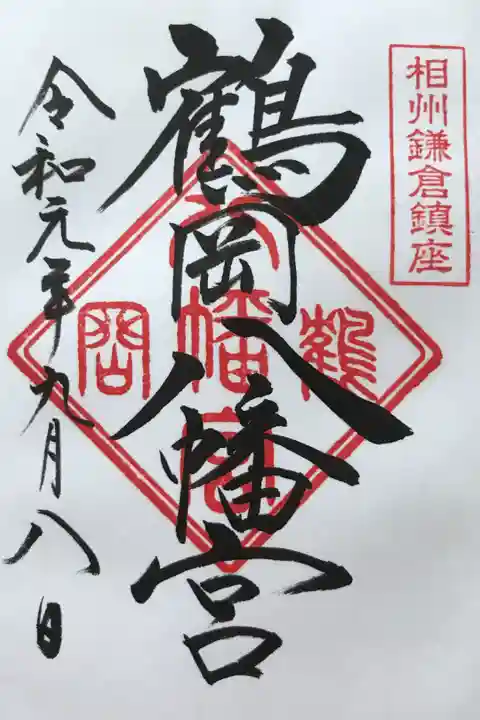 相州鎌倉鎮座
鶴岡八幡宮
鶴
八幡宮
岡
令和元年九月八日